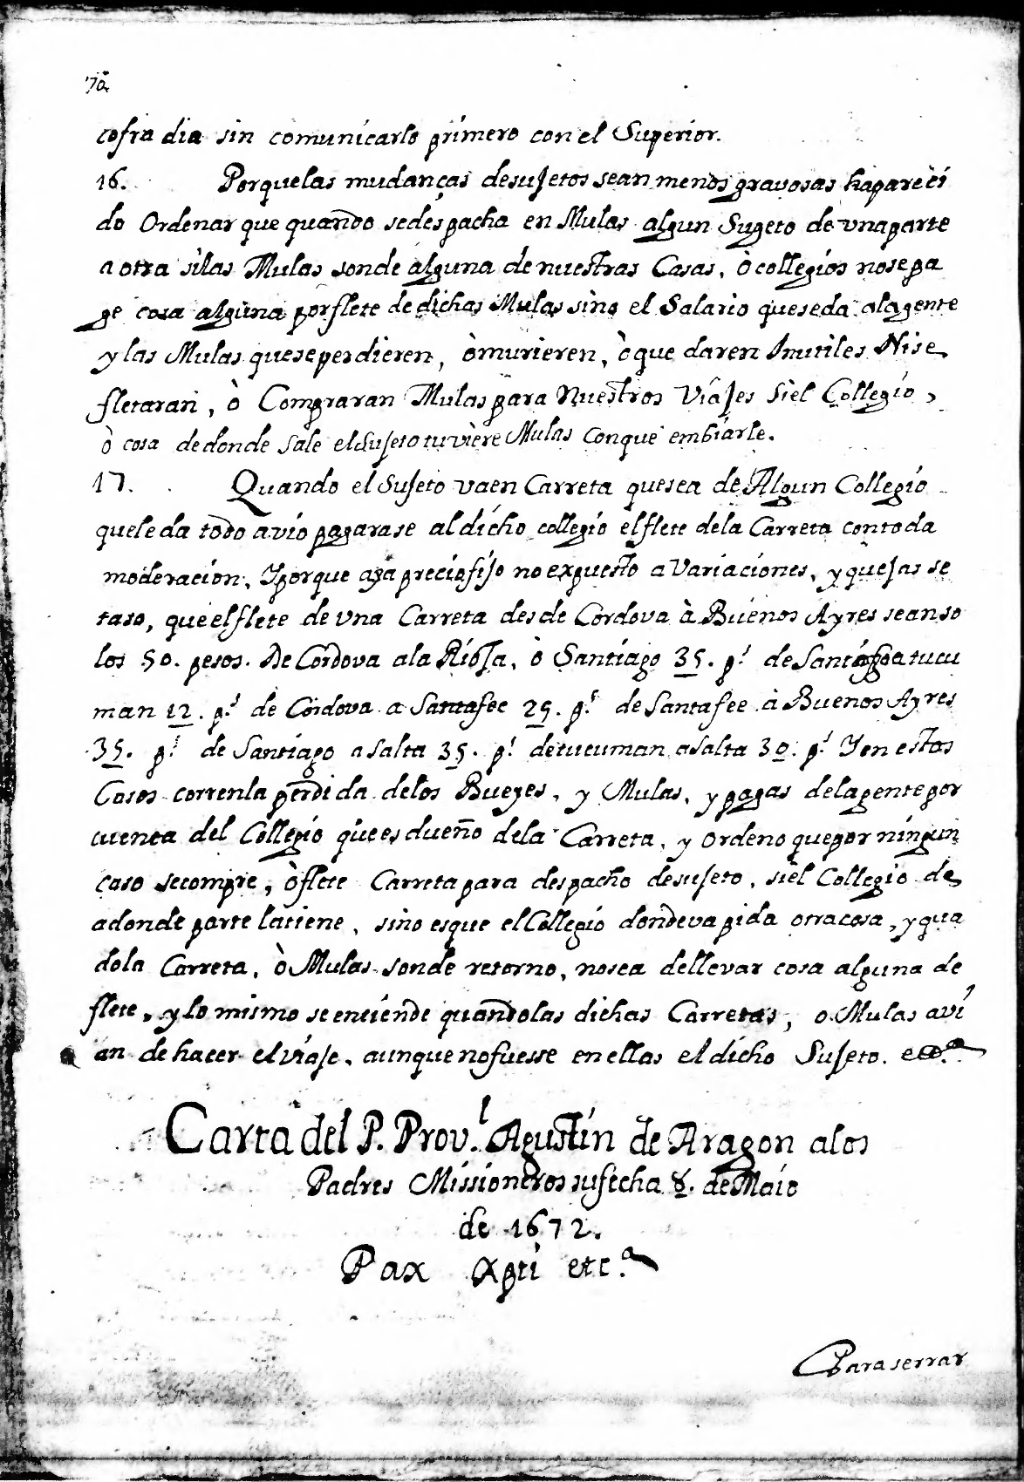 70
cofradia sin comunicarlo primero con el Superior.
16. Porque las mudanças de sujetos sean menos gravosas ha pareci
do Ordenar que quando se despacha en Mulas algun Sugeto de vna parte
a otra si las Mulas son de alguna de nuestras Casas, ò collegios no se pa
ge cosa alguna por flete de dichas Mulas sino el Salario que se da a la gente
y las Mulas que se perdieren, ò murieren, ò quedaren Inutiles. Ni se
fletaran, ò Compraran Mulas para Nuestros Viajes si el Collegio,
ò cosa de donde sale el Sujeto tuviere Mulas con que embiarle.
17. Quando el Sujeto va en Carreta que sea de Algun Collegio
que le da todo avio pagarase al dicho collegio el flete de la Carreta con toda
moderacion, Y porque aya precio fijo no expuesto a Variaciones, y quejas se
taso, que el flete de vna Carreta desde Cordova à Buenos Ayres sean so
los 50. pesos. De Cordova a la Rioja, ò Santiago 35. p.ˢ de Santiago a tucu
man 12. p.ˢ de Cordova a Santafee 25. p.ˢ de Santafee à Buenos Ayres
35. p.ˢ de Santiago a Salta 35. p.ˢ de tucuman a Salta 30. p.ˢ Y en estos
Casos corren la perdida de los Bueyes, y Mulas, y pagas de la gente por
cuenta del Collegio que es dueño de la Carreta, y Ordeno que por ningun
caso se compre, ò flete Carreta para despacho de sujeto, si el Collegio de
adonde parte la tiene, sino es que el Collegio donde va pida otra cosa, y qua
do la Carreta, ò Mulas son de retorno, no se a de llevar cosa alguna de
flete, y lo mismo se entiende quando las dichas Carretas, o Mulas avi
an de hacer el viaje, aunque no fuesse en ellas el dicho Sujeto.
Carta del P. Prov.ˡ Agustin de Aragon a los
Padres Missioneros su fecha 8. de Maio
de 1672.
Pax Xpti etc.ª
Para serrar